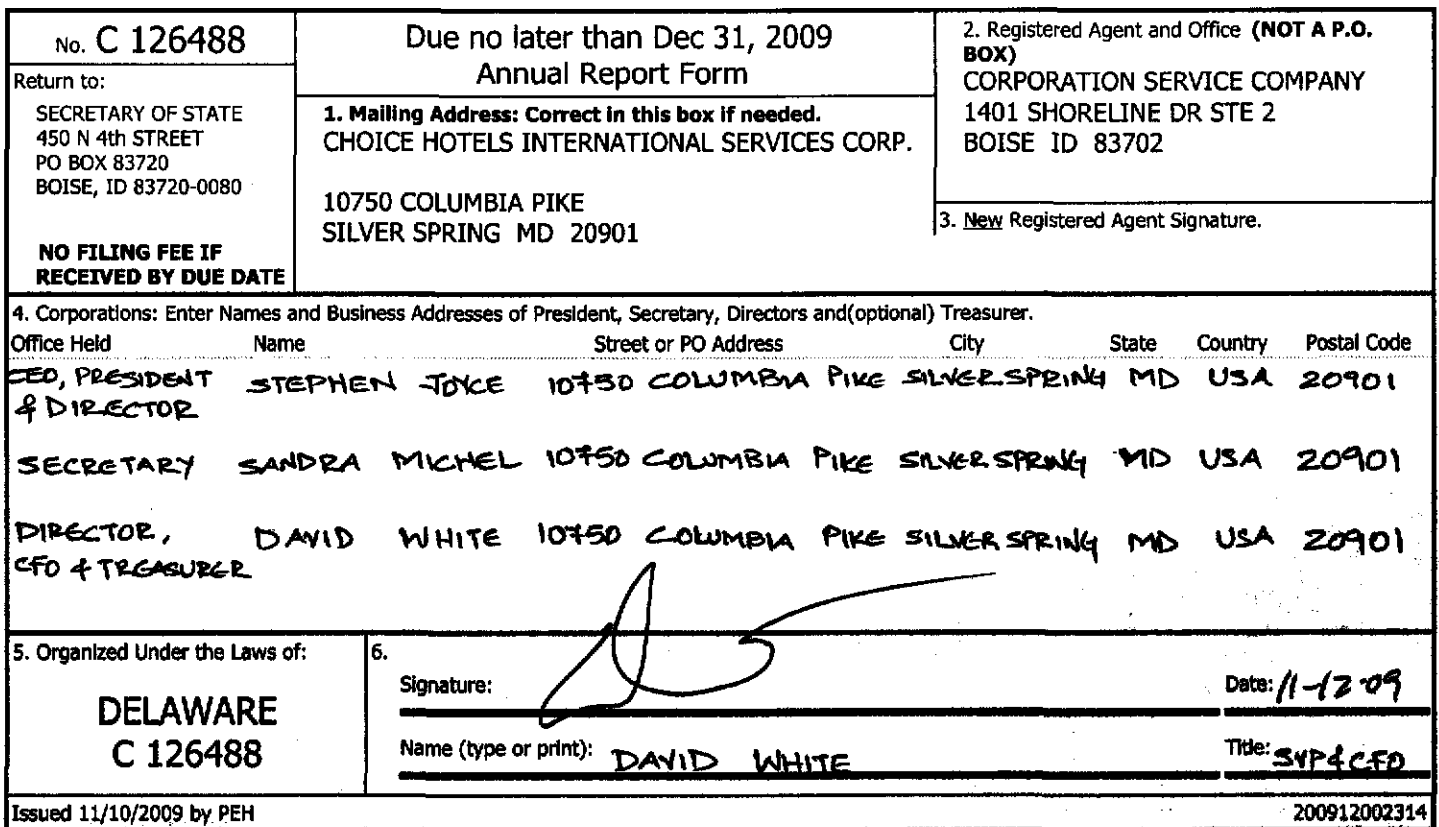 No. C 126488
Return to:
SECRETARY OF STATE
450 N 4th STREET
PO BOX 83720
BOISE, ID 83720-0080
NO FILING FEE IF
RECEIVED BY DUE DATE
Due no later than Dec 31, 2009
Annual Report Form
1. Mailing Address: Correct in this box if needed.
CHOICE HOTELS INTERNATIONAL SERVICES CORP.
10750 COLUMBIA PIKE
SILVER SPRING MD 20901
2. Registered Agent and Office (NOT A P.O.
BOX)
CORPORATION SERVICE COMPANY
1401 SHORELINE DR STE 2
BOISE ID 83702
3. New Registered Agent Signature.
4. Corporations: Enter Names and Business Addresses of President, Secretary, Directors and(optional) Treasurer.
Office Held Name Street or PO Address City State Country Postal Code
CEO, PRESIDENT STEPHEN JOYCE 10750 COLUMBIA PIKE SILVER SPRING MD USA 20901
& DIRECTOR
SECRETARY SANDRA MICHEL 10750 COLUMBIA PIKE SILVER SPRING MD USA 20901
DIRECTOR, DAVID WHITE 10750 COLUMBIA PIKE SILVER SPRING MD USA 20901
CFO & TREASURER
5. Organized Under the Laws of:
DELAWARE
C 126488
6.
Signature: Date: 11-12-09
Name (type or print): DAVID WHITE Title: SVP & CFO
Issued 11/10/2009 by PEH 200912002314